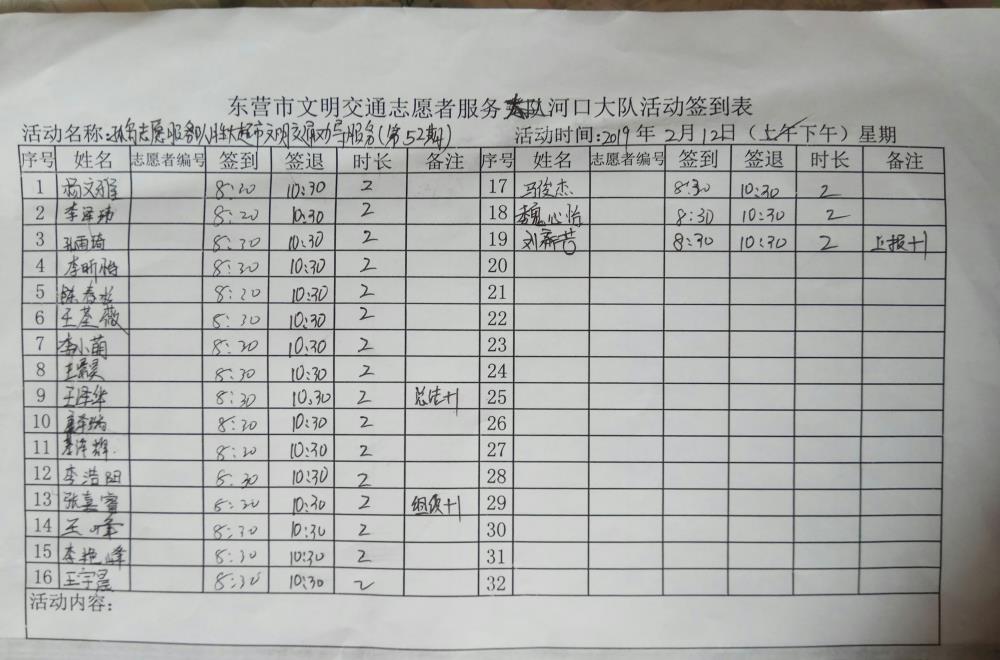 东营市文明交通志愿者服务大队河口大队活动签到表
活动名称:志愿服务队胜大超市文明交通劝导服务(第52期) 活动时间:2019年2月12日(上午下午)星期
序号 姓名 志愿者编号 签到 签退 时长 备注 序号 姓名 志愿者编号 签到 签退 时长 备注
1 杨文雅 8:30 10:30 2 17 马俊杰 8:30 10:30 2
2 李泽玮 8:20 10:30 2 18 魏心怡 8:30 10:30 2
3 孔雨琦 8:30 10:30 2 19 刘新芸 8:30 10:30 2 上报+1
4 李昕怡 8:30 10:30 2 20
5 陈春 8:30 10:30 2 21
6 王荃薇 8:30 10:30 2 22
7 李小萌 8:30 10:30 2 23
8 王 8:30 10:30 2 24
9 王泽华 8:30 10:30 2 总结+1 25
10 8:30 10:30 2 26
11 8:20 10:30 2 27
12 李浩阳 8:30 10:30 2 28
13 张嘉睿 8:20 10:30 2 组织+1 29
14 王峰 8:30 10:30 2 30
15 李艳峰 8:30 10:30 2 31
16 王宇晨 8:30 10:30 2 32
活动内容: